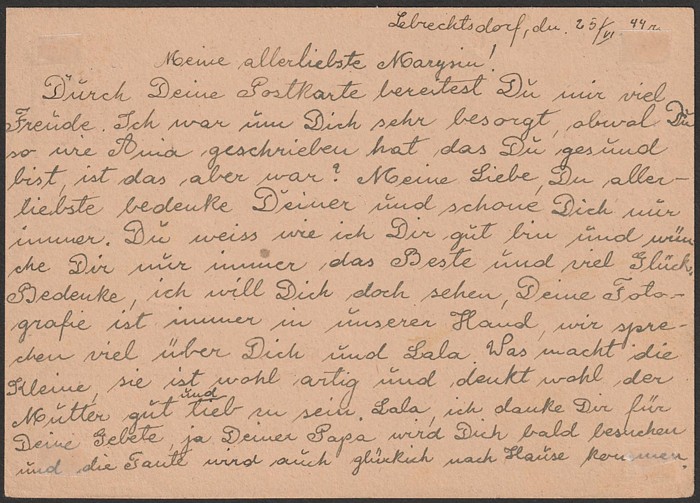 Lebrechtsdorf, den. 25/VI 44 r.
Meine allerliebste Marysiu!
Durch Deine Postkarte bereitest Du mir viel
Freude. Ich war um Dich sehr besorgt, obwal Du
so wie Ania geschrieben hat das Du gesund
bist, ist das aber war? Meine Liebe, Du aller-
liebste bedenke Deiner und schone Dich nur
immer. Du weiss wie ich Dir gut bin und wün-
che Dir nur immer das Beste und viel Glück.
Bedenke, ich will Dich doch sehen, Deine Foto-
grafie ist immer in unserer Hand, wir spre-
chen viel über Dich und Lala. Was macht die
Kleine, sie ist wohl artig und denkt wohl der
Mutter gut und lieb zu sein. Lala, ich danke Dir für
Deine Gebete, ja Deiner Papa wird Dich bald besuchen
und die Tante wird auch glücklich nach Hause kommen.